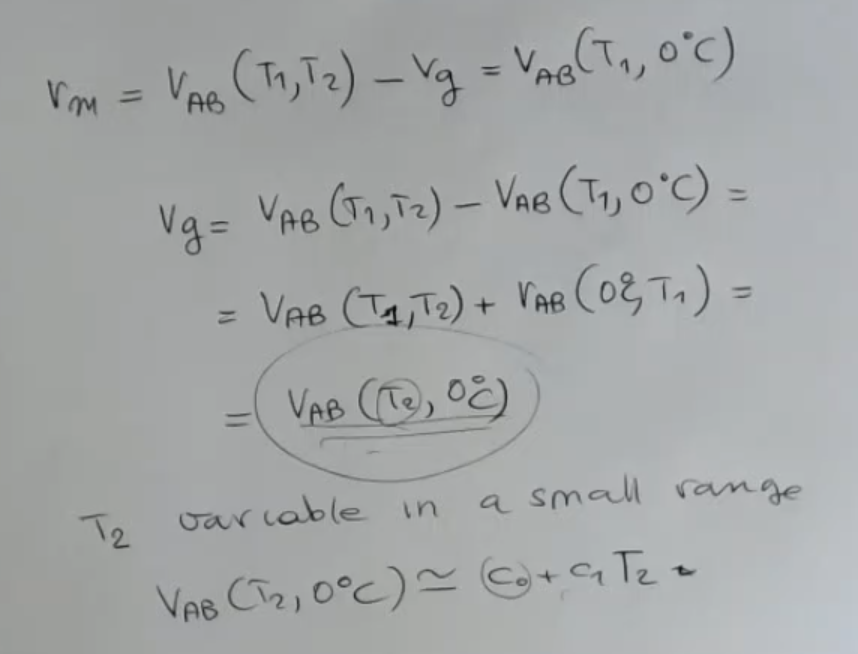 Vm = VAB (T1,T2) - Vg = VAB(T1, 0°C)
Vg = VAB (T1,T2) - VAB (T1, 0°C) =
= VAB (T1,T2) + VAB (0°C, T1) =
= VAB (T2, 0°C)
T2 variable in a small range
VAB (T2, 0°C) ≃ C0 + C1 T2